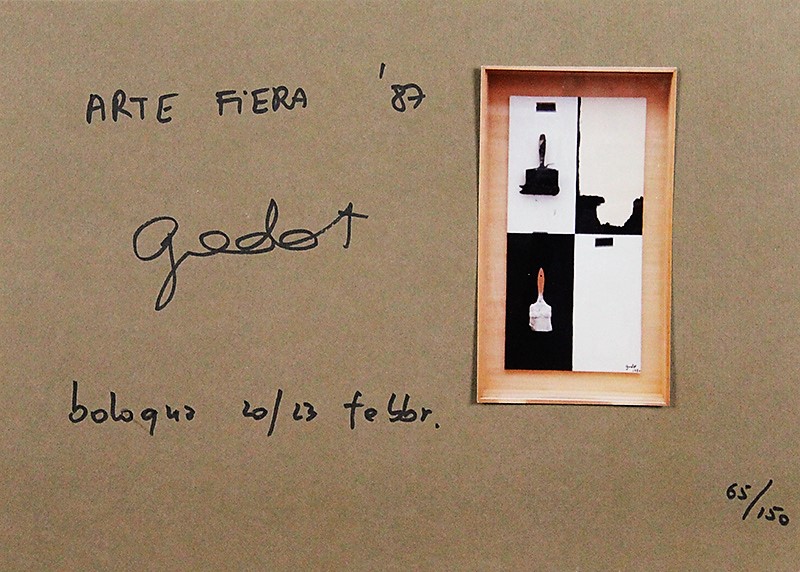 ARTE FiERA '87
godot
bologna 20/23 febbr.
65/150